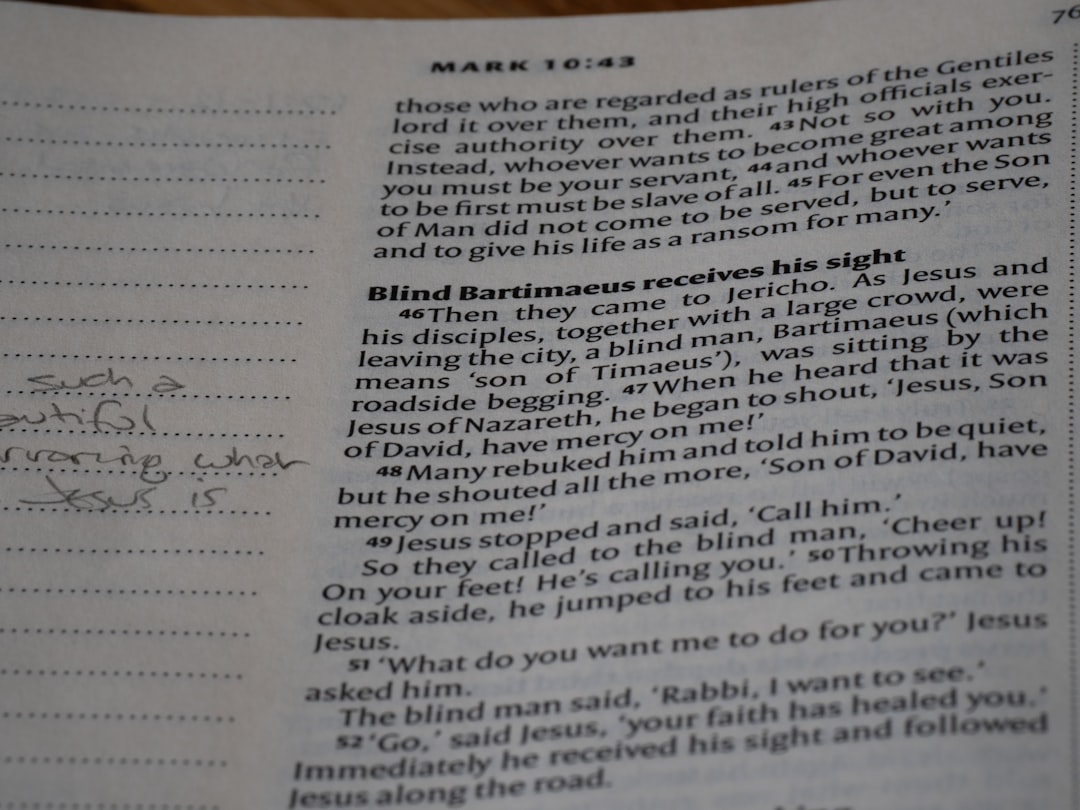 76
MARK 10:43
those who are regarded as rulers of the Gentiles
lord it over them, and their high officials exer-
cise authority over them. 43 Not so with you.
Instead, whoever wants to become great among
you must be your servant, 44 and whoever wants
to be first must be slave of all. 45 For even the Son
of Man did not come to be served, but to serve,
and to give his life as a ransom for many.’
Blind Bartimaeus receives his sight
46 Then they came to Jericho. As Jesus and
his disciples, together with a large crowd, were
leaving the city, a blind man, Bartimaeus (which
means ‘son of Timaeus’), was sitting by the
roadside begging. 47 When he heard that it was
Jesus of Nazareth, he began to shout, ‘Jesus, Son
of David, have mercy on me!’
48 Many rebuked him and told him to be quiet,
but he shouted all the more, ‘Son of David, have
mercy on me!’
49 Jesus stopped and said, ‘Call him.’
So they called to the blind man, ‘Cheer up!
On your feet! He’s calling you.’ 50 Throwing his
cloak aside, he jumped to his feet and came to
Jesus.
51 ‘What do you want me to do for you?’ Jesus
asked him.
The blind man said, ‘Rabbi, I want to see.’
52 ‘Go,’ said Jesus, ‘your faith has healed you.’
Immediately he received his sight and followed
Jesus along the road.
such a
autiful
what
Jesus is